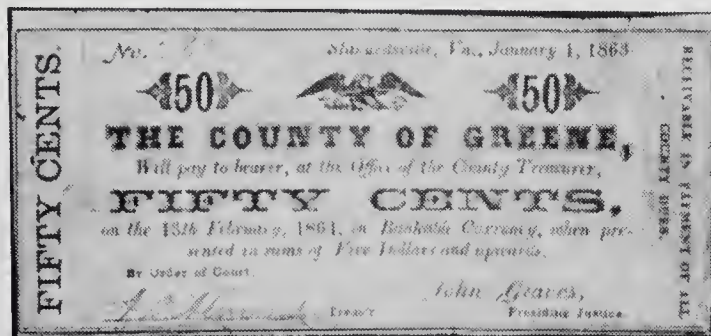 FIFTY CENTS.
No.
Va., January 1, 1863
50 50
THE COUNTY OF GREENE,
Will pay to bearer, at the Office of the County Treasurer,
FIFTY CENTS,
on the 15th February, 1864, in Bankable Currency, when pre-
sented in sums of Five Dollars and upwards.
By Order of Court.
John Graves,
Treas'r
Presiding Justice.
RECEIVABLE IN PAYMENT OF ALL
COUNTY DUES.